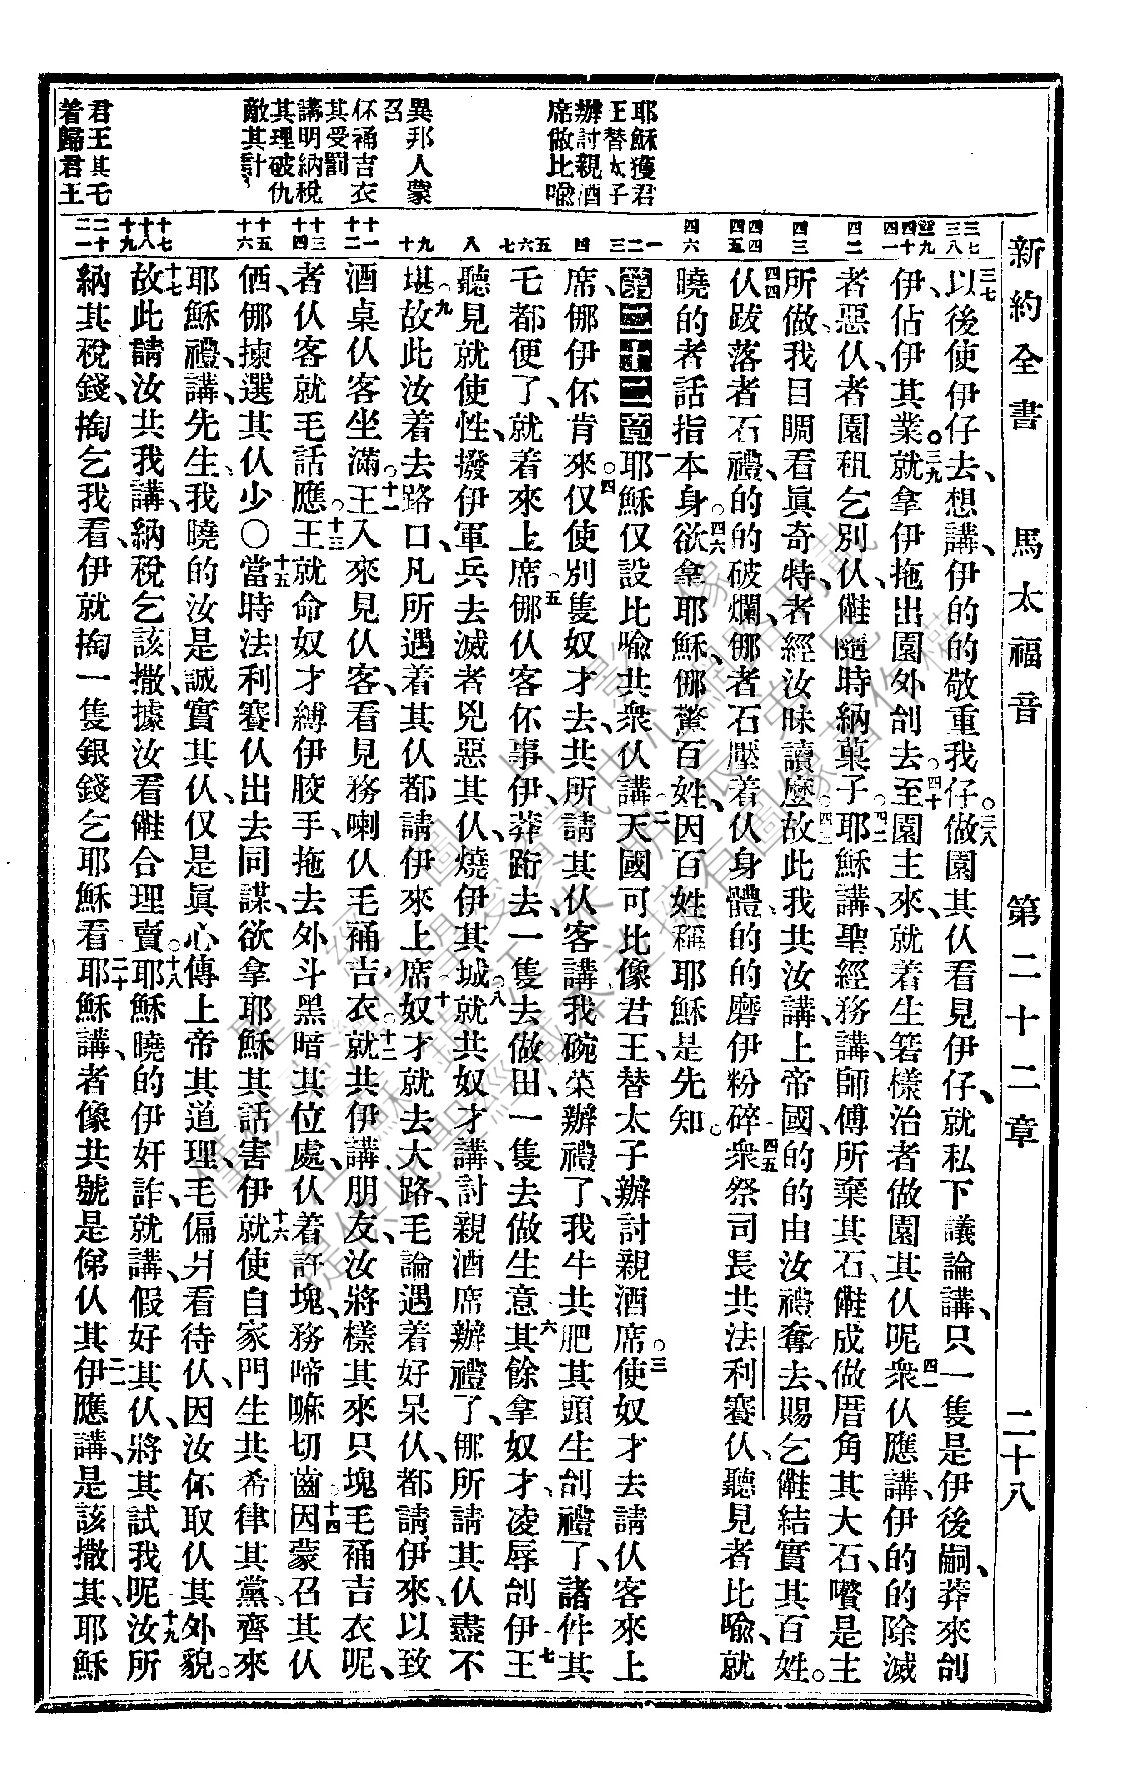 新約全書 馬太福音 第二十二章 二十八
耶穌獲君
王替太子
辦討親酒
席做比喻
異邦人蒙
召
伓䘄吉衣
其受罰
講明納稅
其理破仇
敵其計
君王其乇
着歸君王
三七以後使伊仔去、想講、伊的的敬重我仔。三八做園其仈看見伊仔、就私下議論講、只一隻是伊後嗣、莽來刣
伊、佔伊其業。三九就拿伊拖出園外刣去。四十至園主來、就着生箬樣治者做園其仈呢。四一衆仈應講、伊的的除滅
者惡仈、者園租乞別仈、傩隨時納菓子。四二耶穌講、聖經務講、師傅所棄其石、傩成做厝角其大石、嚽是主
所做、我目睭看眞奇特、者經汝昧讀麽。四三故此我共汝講、上帝國的的由汝禮奪去、賜乞傩結實其百姓。
四四仈跋落者石禮、的的破爛、㑚者石壓着仈身體、的的磨伊粉碎。四五衆祭司長共法利賽仈、聽見者比喻、就
曉的者話指本身。四六欲拿耶穌、㑚驚百姓、因百姓稱耶穌是先知。
第二十二章一耶穌仅設比喻共衆仈講、二天國可比像君王、替太子辦討親酒席。三使奴才去請仈客來上
席、㑚伊伓肯來。四仅使別隻奴才去、共所請其仈客講、我碗菜辦禮了、我牛共肥其頭生刣禮了、諸件其
乇都便了、就着來上席。五㑚仈客伓事伊、莽𨀣去、一隻去做田、一隻去做生意、六其餘拿奴才、凌辱刣伊。七王
聽見就使性、撥伊軍兵去滅者兇惡其仈、燒伊其城。八就共奴才講、討親酒席辦禮了、㑚所請其仈盡不
堪。九故此汝着去路口、凡所遇着其仈都請伊來上席。十奴才就去大路、毛論遇着好呆仈、都請伊來、以致
酒桌仈客坐滿。十一王入來見仈客、看見務喇仈毛䘄吉衣、十二就共伊講、朋友、汝將樣其來只塊毛䘄吉衣呢、
者仈客就毛話應。十三王就命奴才、縛伊骹手、拖去外斗黑暗其位處、仈着許塊、務啼嘛切齒。十四因蒙召其仈
㑚、㑚揀選其仈少○十五當時法利賽仈出去同謀、欲拿耶穌其話害伊。十六就使自家門生共希律其黨、齊來
耶穌禮講、先生、我曉的汝是誠實其仈、仅是眞心傳上帝其道理、毛偏爿看待仈、因汝伓取仈其外貌。
十七故此請汝共我講、納稅乞該撒、據汝看傩合理賣。十八耶穌曉的伊奸詐、就講、假好其仈、將其試我呢。十九汝所
納其稅錢、掏乞我看、伊就掏一隻銀錢乞耶穌看。二十耶穌講、者像共號是俤仈其。二一伊應講、是該撒其、耶穌